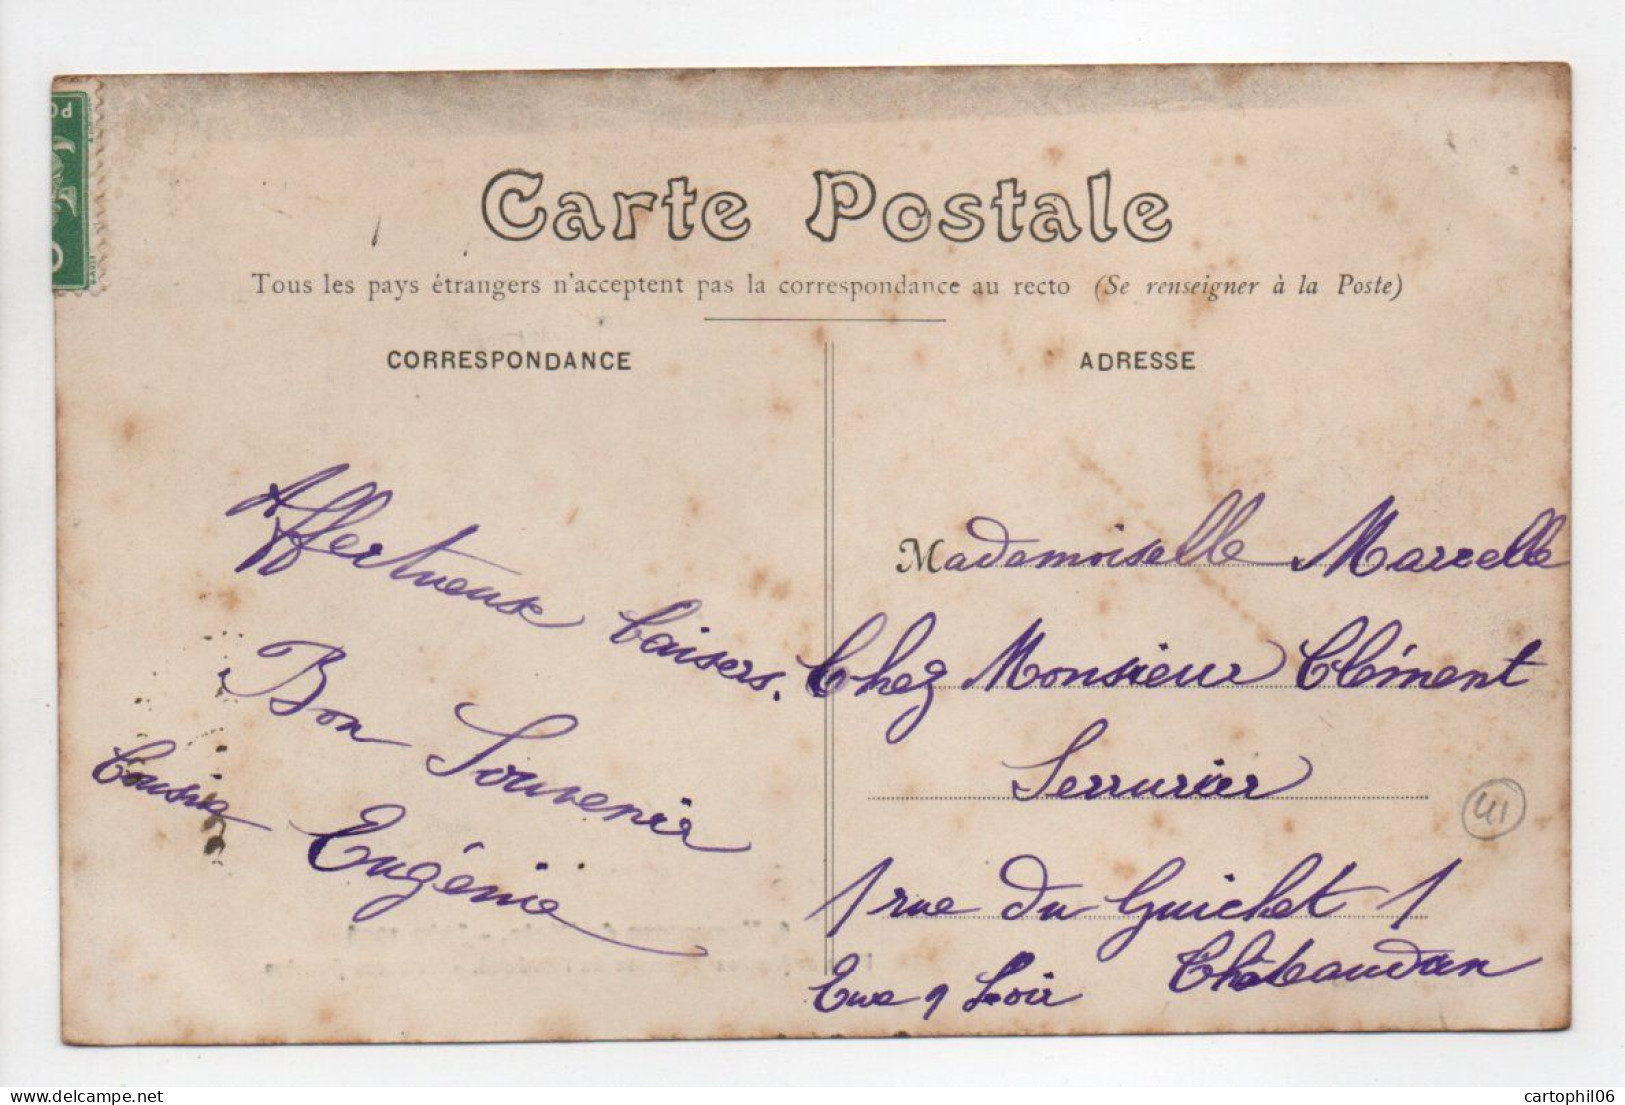 Carte Postale
Tous les pays étrangers n'acceptent pas la correspondance au recto (Se renseigner à la Poste)
CORRESPONDANCE
Affectueux baisers.
Bon Souvenir
Cousine Eugénie
ADRESSE
Mademoiselle Marcelle
Chez Monsieur Clément
Serrurier
1 rue du Guichet 1
Châteaudun
Eure & Loir
41
cartophil06